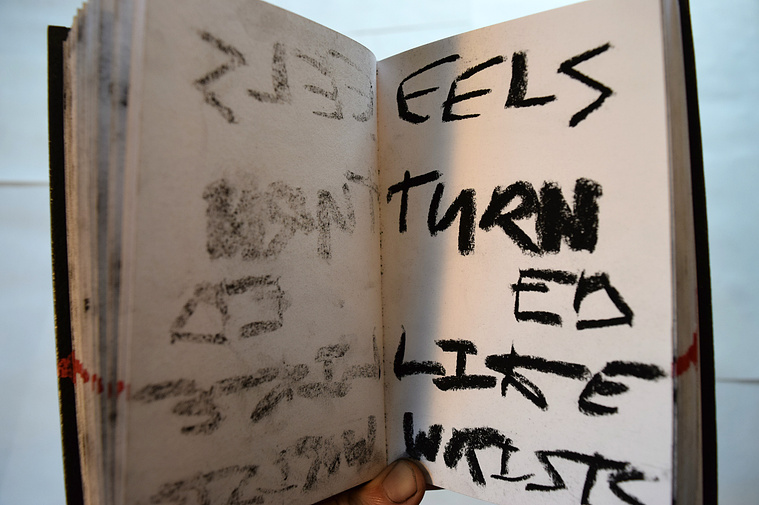 EELS
TURN
ED
LIKE
WRISTS